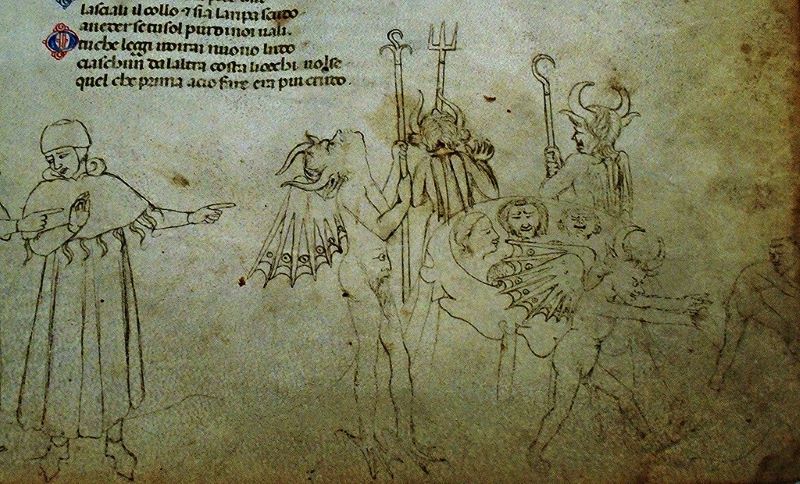 lascisi il collo & sia la ripa scudo
aueder se tu sol piu di noi uali.
O tu che leggi udirai nuouo ludo
ciaschun da laltra costa liocchi uolse
quel che prima acio fare era piu crudo.